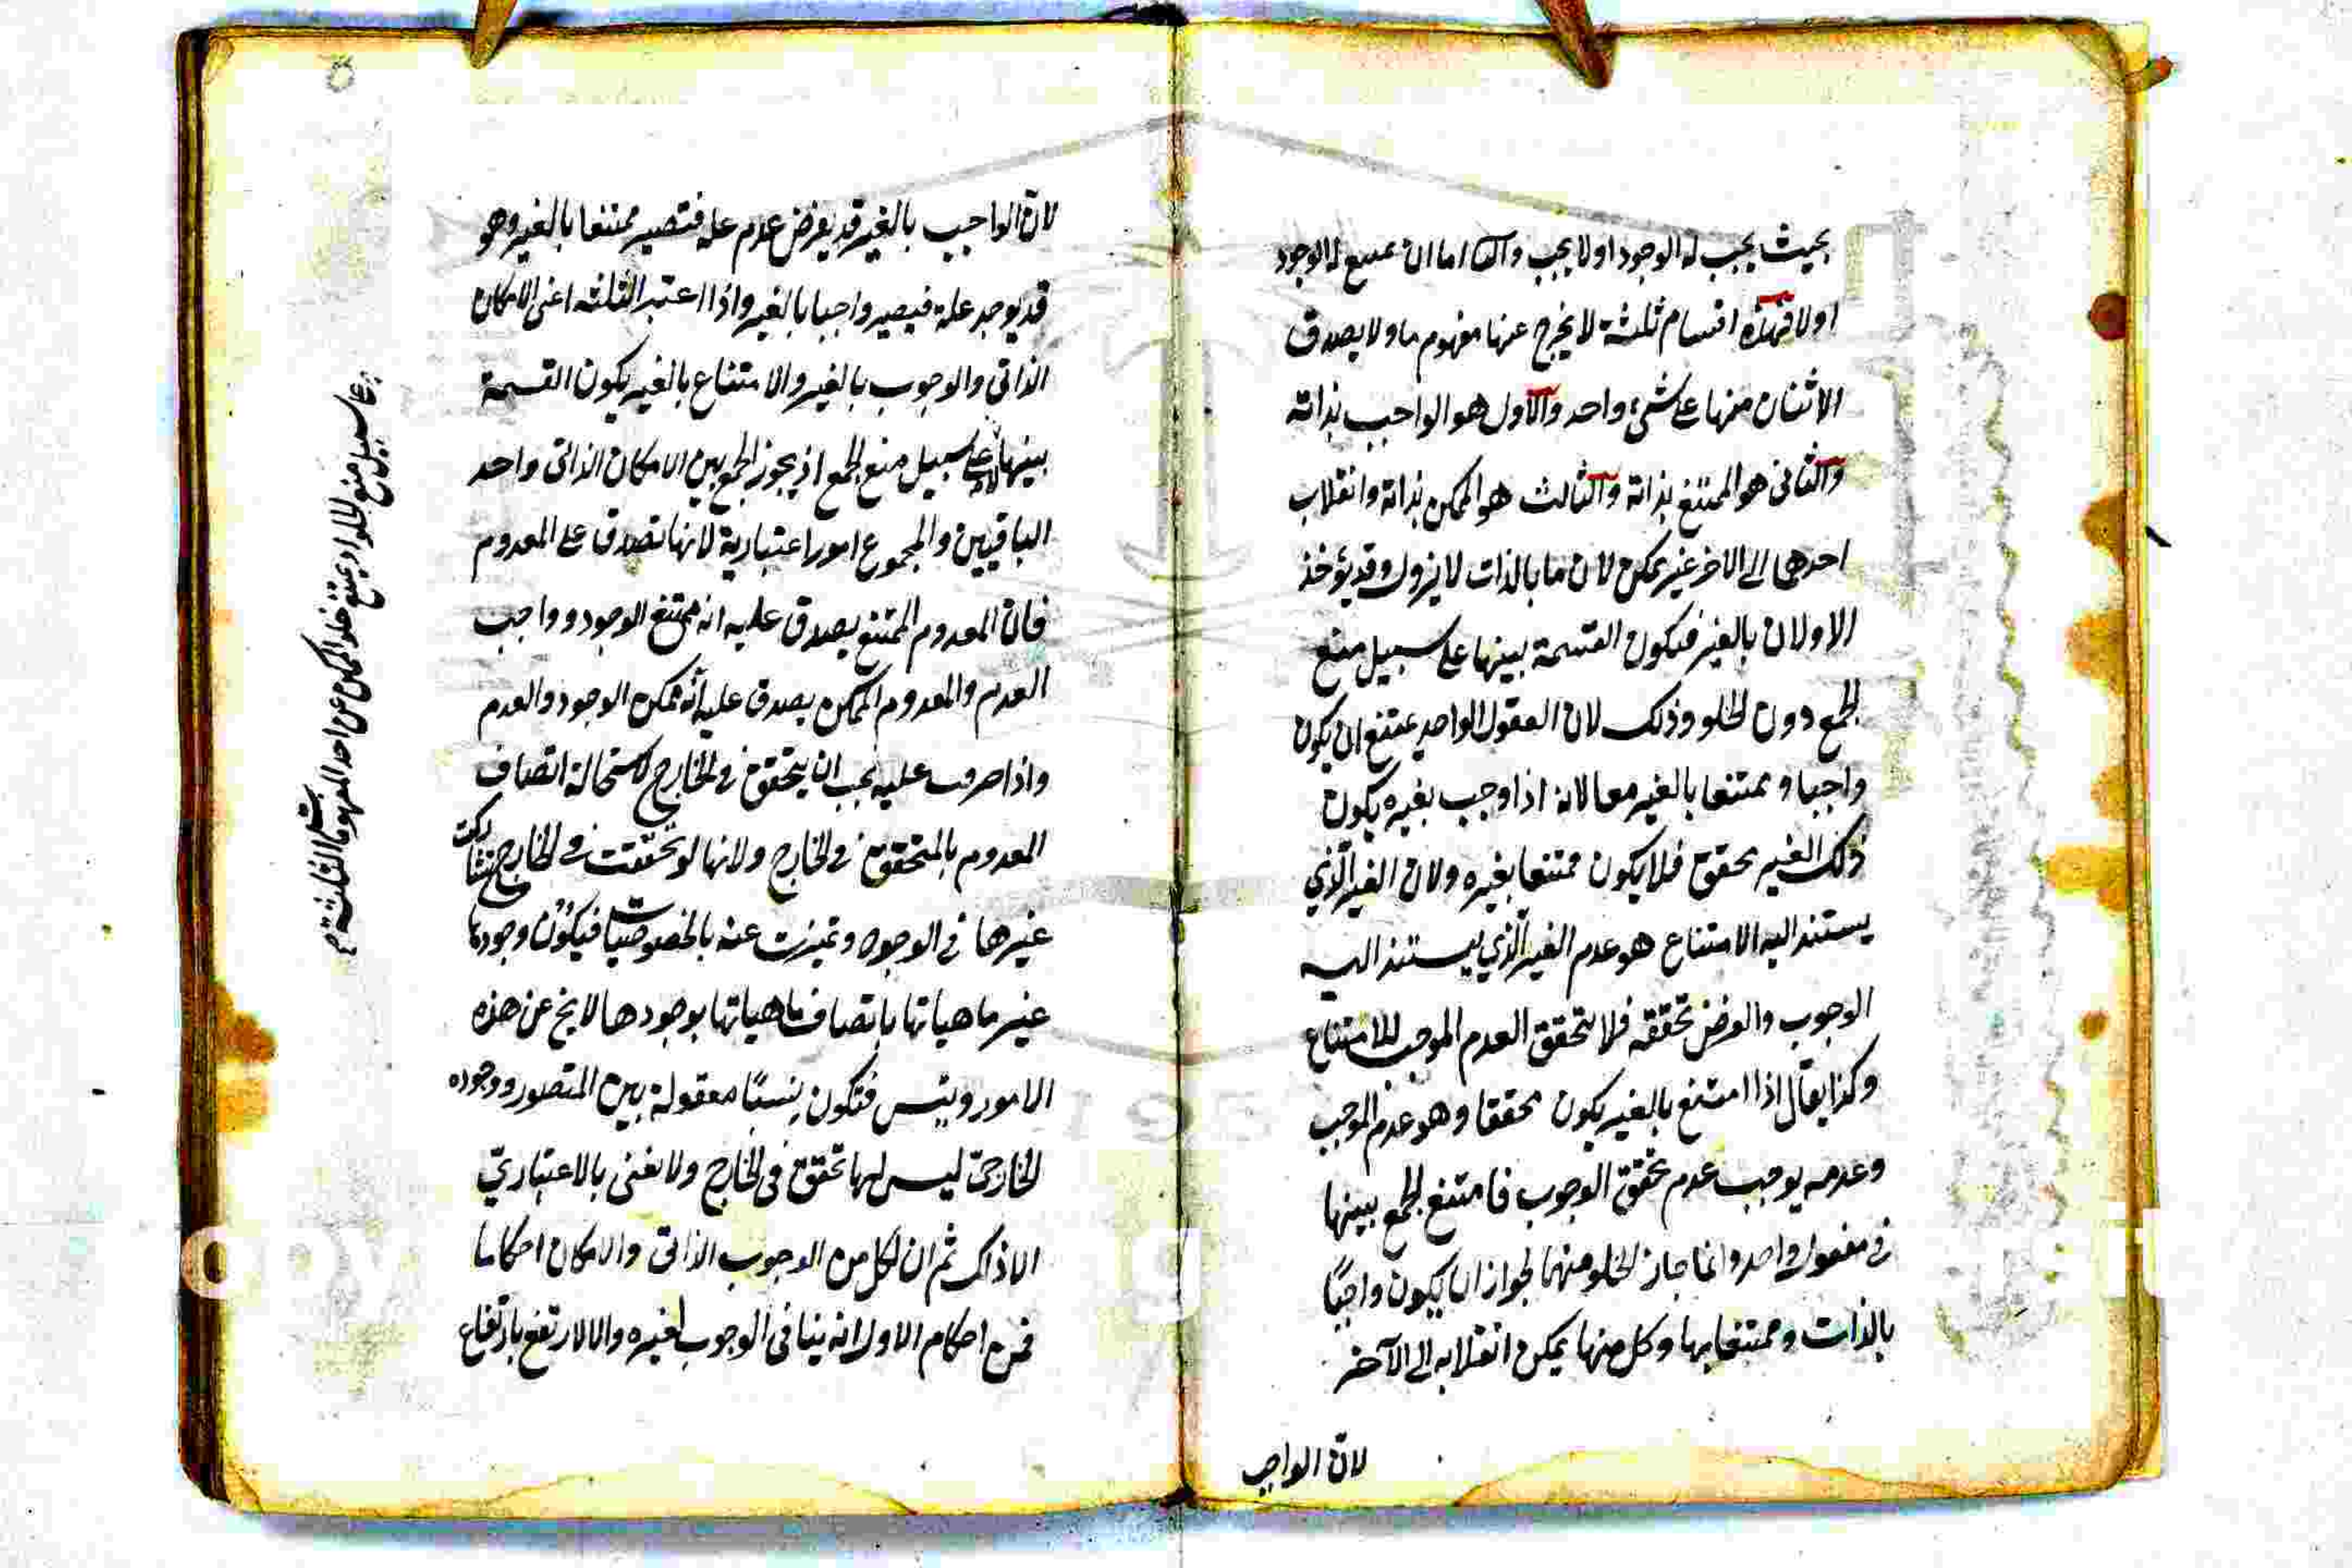 بحيث يجب له الوجود اولا يجب والثا اما ان يمتنع له الوجود
اولا فهذه اقسام ثلثة لا يخرج عنها مفهوم ما ولا يصدق
الاثنان منها على شئ واحد والاول هو الواجب بذاته
والثانى هو الممتنع بذاته والثالث هو الممكن بذاته وانقلاب
احدها الى الاخر غير ممكن لان ما بالذات لا يزول وقد يؤخذ
الاولان بالغير فيكون القسمة بينها على سبيل منع
الجمع دون الخلو وذلك لان المعقول الواحد يمتنع ان يكون
واجبا و ممتنعا بالغير معا لانه اذا وجب بغيره يكون
ذلك الغير محقق فلا يكون ممتنعا بغيره ولان الغير الذي
يستند اليه الامتناع هو عدم الغير الذي يستند اليه
الوجوب والفرض تحققه فلا يتحقق العدم الموجب للامتناع
وكذا يقال اذا امتنع بالغير يكون محققا وهو عدم الموجب
وعدمه يوجب عدم تحقق الوجوب فامتنع الجمع بينها
فى معقول واحد وانما جاز الخلو منهما لجواز ان يكون واجبًا
بالذات وممتنعا بها وكل منها يمكن انقلابه الى الآخر
لان الواجب
لان الواجب بالغير قد يفرض عدم عله فتصير ممتنعا بالغير وهو
قد يوجد علة فيصير واجبا بالغير واذا اعتبر الثلثه اعنى الامكان
الذاتى والوجوب بالغير والامتناع بالغير يكون القسمة
بينها لا على سبيل منع الجمع اذ يجوز الجمع بين الامكان الذاتى و احد
الباقيين والمجموع امور اعتبارية لانها تصدق على المعدوم
فان المعدوم الممتنع يصدق عليه انه ممتنع الوجود و واجب
العدم والمعدوم الممكن يصدق عليه أنه ممكن الوجود والعدم
واذا صرفت عليه يجب ان يتحقق فى الخارج لاستحالة اتصاف
المعدوم بالمتحقق فى الخارج ولانها لو تحققت فى الخارج لشاركت
غيرها فى الوجود وتميزت عنه بالخصوصيات فيكون وجودها
غير ماهياتها باتصاف ماهياتها بوجودها لا يخ عن هذه
الامور ويتس فتكون نسبًا معقولة بين المتصور ووجوده
الخارجى ليس لها تحقق فى الخارج ولا نعنى بالاعتبارىّ
الا ذاك ثم ان لكل من الوجوب الذاتى والامكان احكاما
فمن احكام الاول انه ينافى الوجوب لغيره والا لارتفع بارتفاع
على سبيل منع الخلو اذ يمتنع خلو الممكن عن احد المفهومات الثلثة